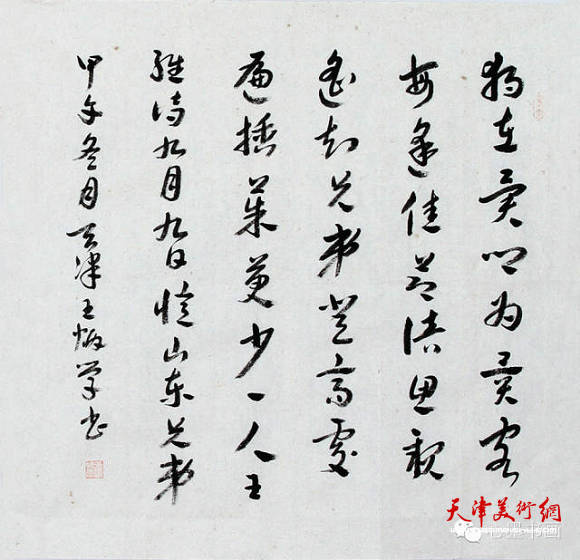 独在异乡为异客
每逢佳节倍思亲
遥知兄弟登高处
遍插茱萸少一人王
维诗九月九日忆山东兄弟
甲午冬月天津王炳学书
天津美術網
书画